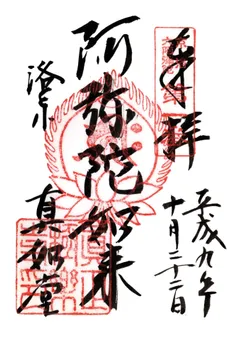 奉拝
平成九年
十月二十二日
阿弥陀如来
洛東
真如堂